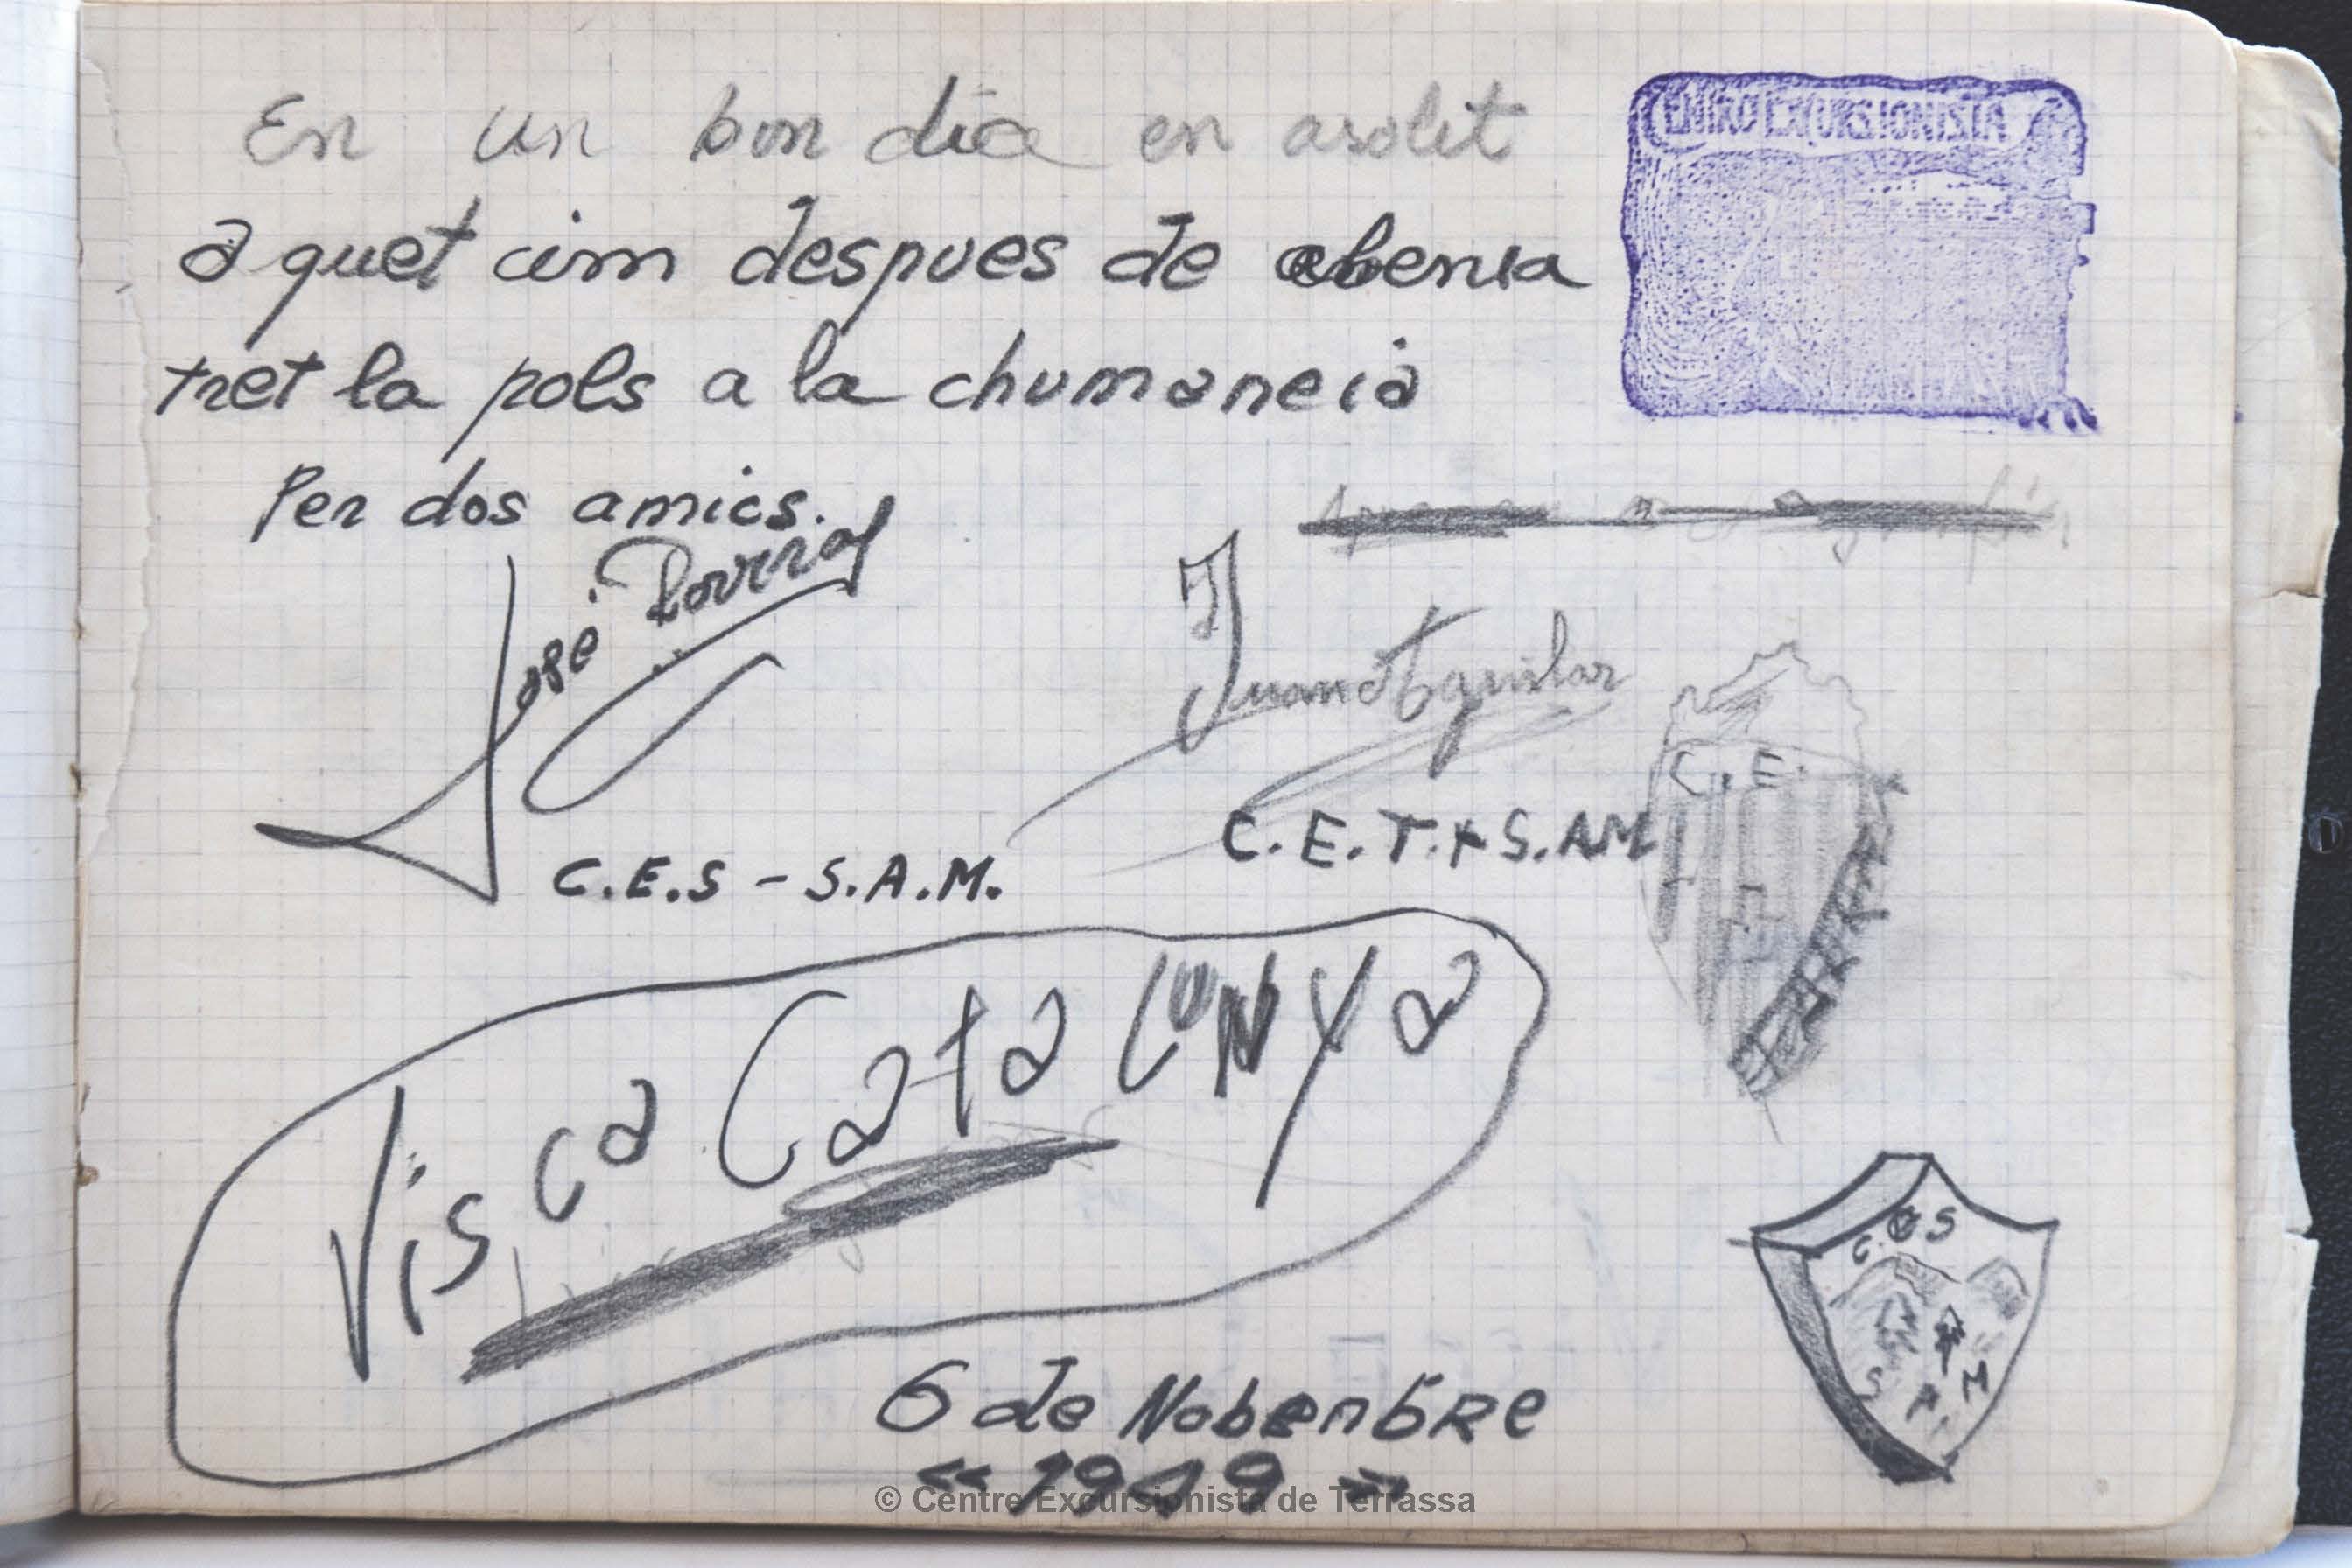 En un bon dia en asolit
aquet cim despues de abenia
tret la pols a la chumaneia
Per dos amics.
CENTRO EXCURSIONISTA
José
Juan Aguilar
C.E.S - S.A.M.
C.E.T. + S.A.M
C. E.
Visca Catalunya
C.E.S
S. A. M
6 de Nobenbre
« 1949 »
© Centre Excursionista de Terrassa